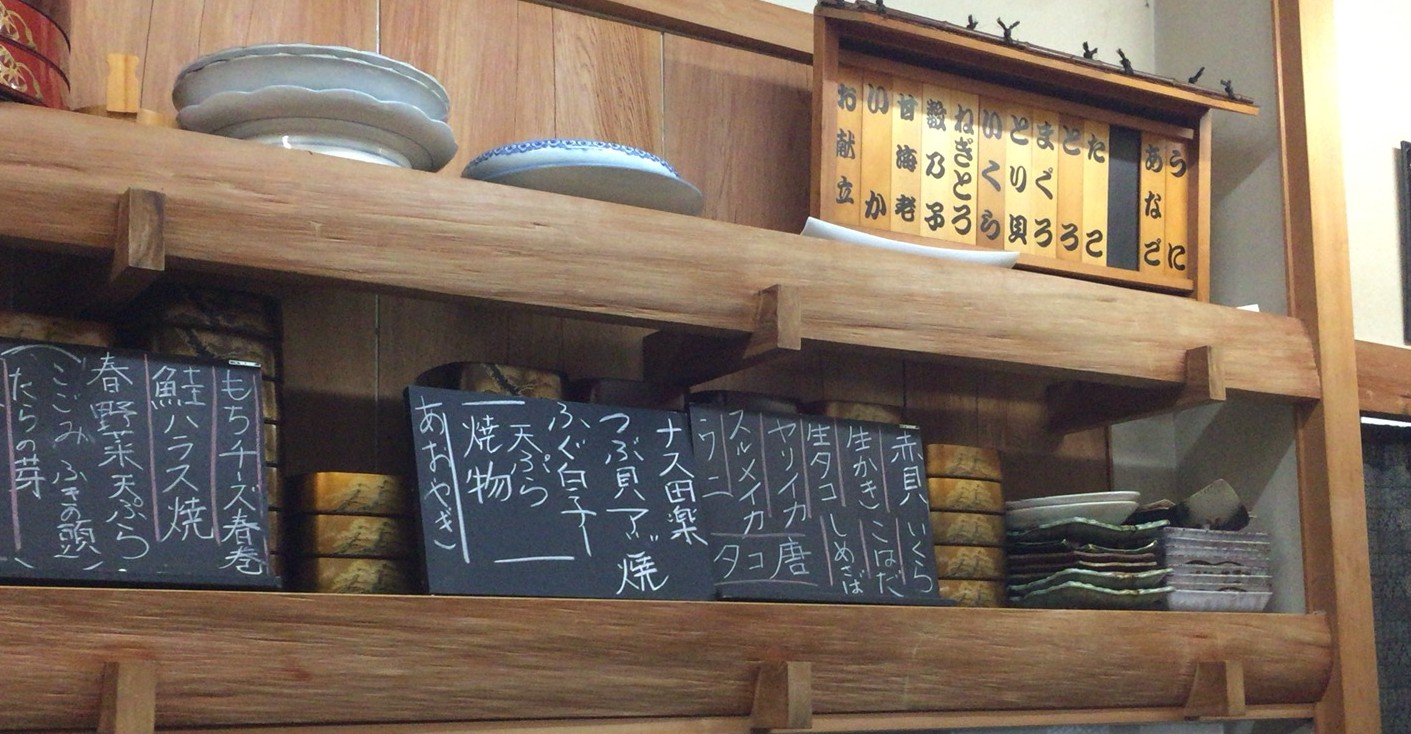 うに
あなご
たこ
とろ
まぐろ
とり貝
いくら
ねぎとろ
数乃子
甘海老
いか
お献立
赤貝 いくら
生かき こはだ
生タコ しめさば
ヤリイカ 唐
スルメイカ タコ
ワニ
ナス田楽
つぶ貝 焼
ふぐ白子
天ぷら
焼物
あおやぎ
もちチーズ春巻
鮭ハラス焼
春野菜天ぷら
こごみ ふきの頭
たらの芽